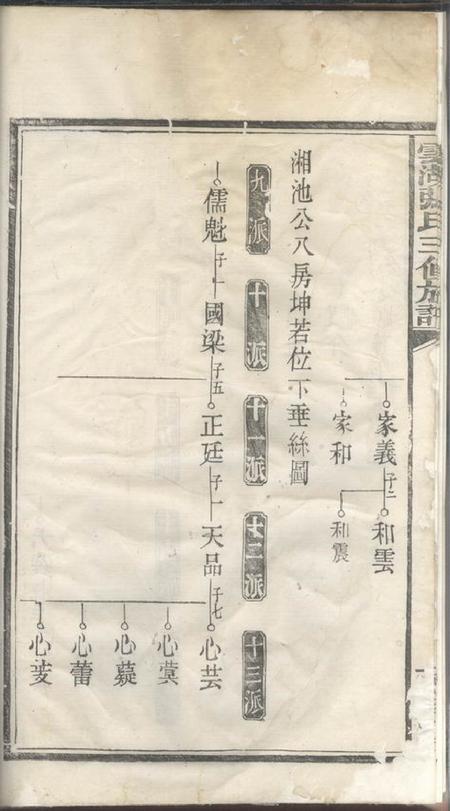 雲湖張氏三修族譜
家義 子二 和雲
和震
家和
湘池公八房坤若位下垂絲圖
九派 十派 十一派 十二派 十三派
儒魁 子一 國梁 子五 正廷 子一 天品 子七 心芸
心蓂
心薿
心蕾
心荾